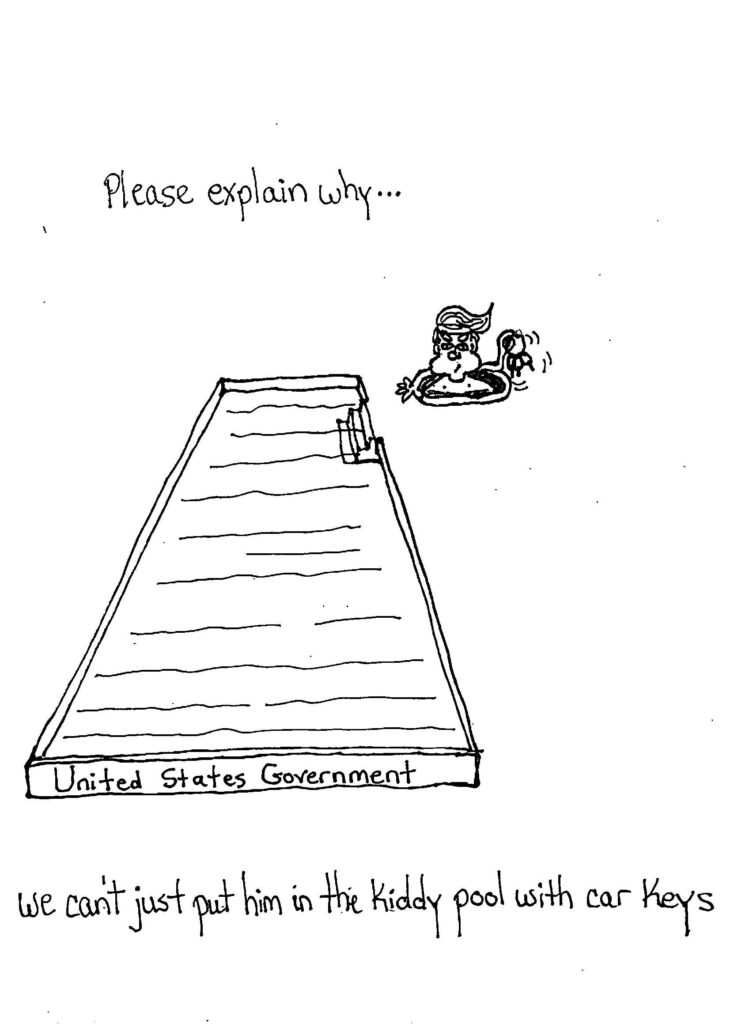 Please explain why...
United States Government
we can't just put him in the kiddy pool with car keys